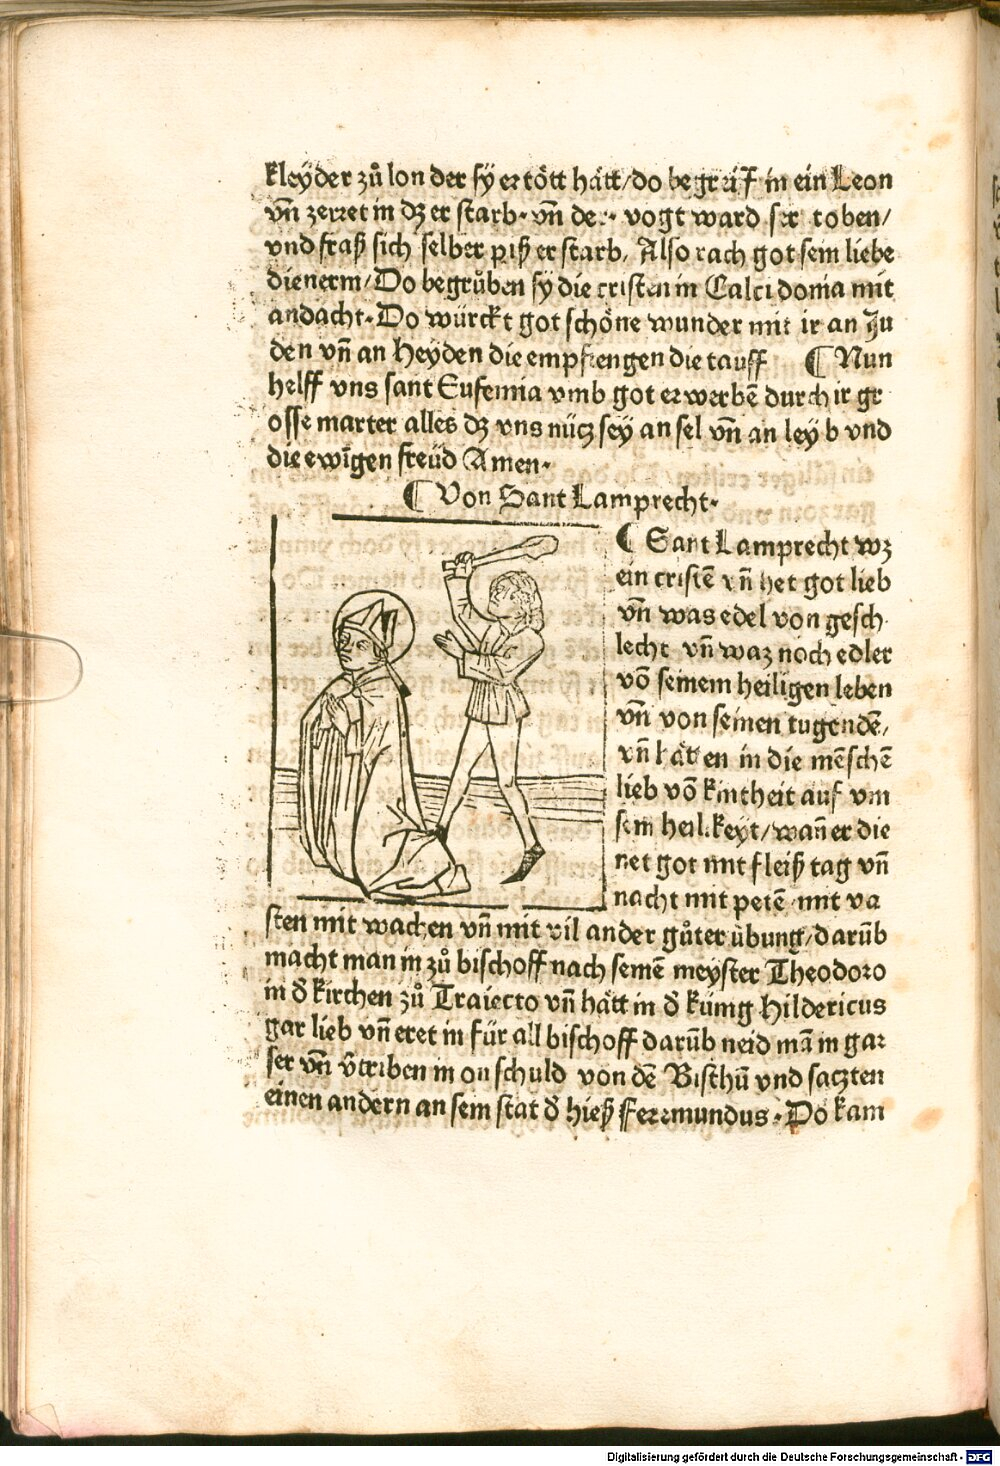 kleÿder zů lon der sÿ er tött hätt/do begriff in ein Leon
vn̄ zerret in dz er starb. vn̄ der vogt ward ser toben/
vnd fraß sich selber piß er starb, Also rach got sein liebe
dienerin/Do begrůben sÿ die cristen in Calcidonia mit
andacht. Do würckt got schöne wunder mit ir an Ju
den vn̄ an Heÿden die empfiengen die tauff ¶ Nun
helff vns sant Eufemia vmb got erwerbē durch ir gr
osse marter alles dz vns nücz seÿ an sel vn̄ an leÿb vnd
die ewigen freüd Amen.
¶ Von Sant Lamprecht.
¶ Sant Lamprecht wz
ein cristē vn̄ het got lieb
vn̄ was edel von gesch
lecht vn̄ waz noch edler
vō seinem heiligen leben
vn̄ von seinen tugendē,
vn̄ hätten in die mēschē
lieb vō kintheit auf vm
sein heilikeyt/wan̄ er die
net got mit fleiß tag vn̄
nacht mit petē mit va
sten mit wachen vn̄ mit vil ander gůter übung/darūb
macht man in zů bischoff nach seinē meyster Theodoro
in d̄ kirchen zů Traiecto vn̄ hätt in d̄ künig Hildericus
gar lieb vn̄ eret in für all bischoff darūb neid mā in gar
ser vn̄ v̄triben in on schuld von dē Bisthū vnd saczten
einen andern an sein stat d̄ hieß Fferrmundus. Do kam
Digitalisierung gefördert durch die Deutsche Forschungsgemeinschaft - DFG